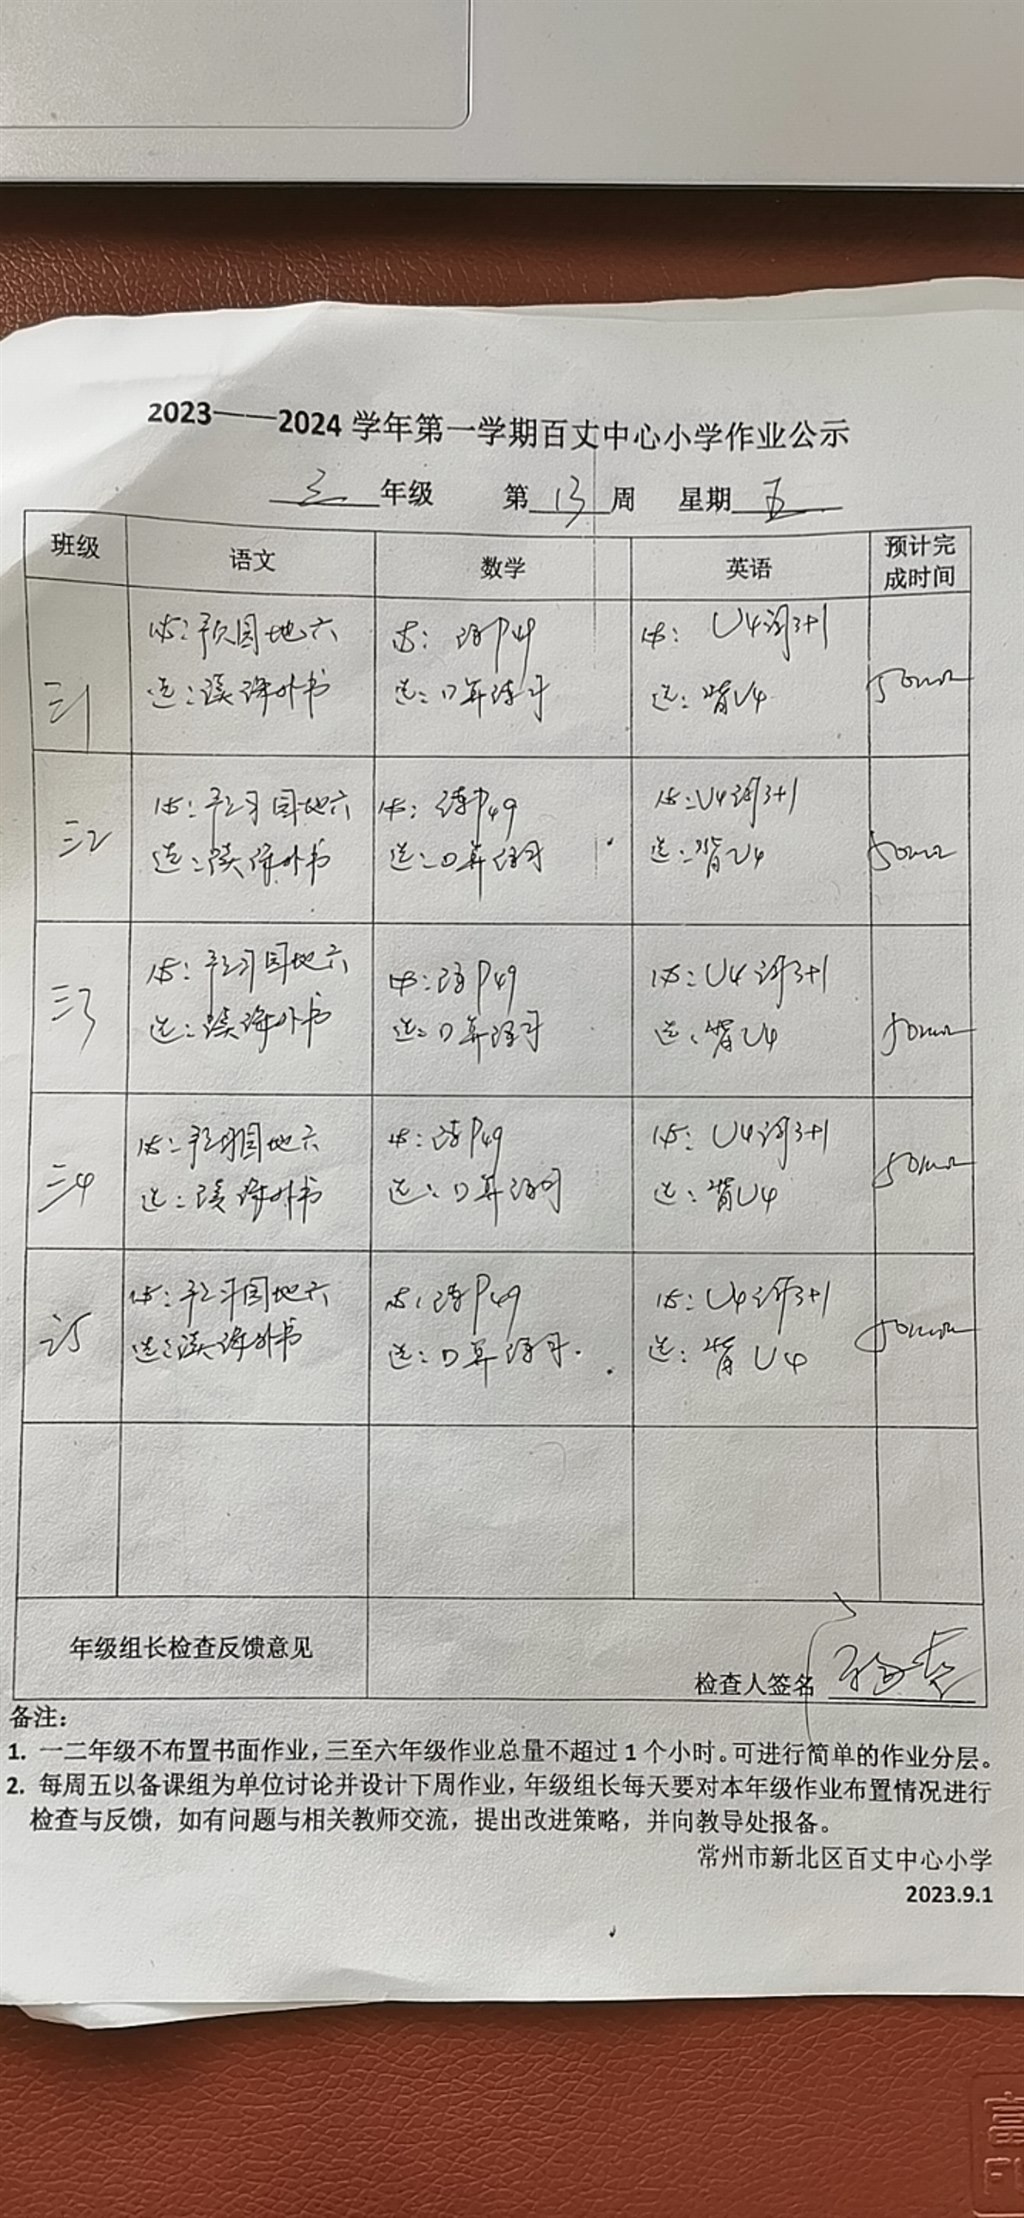 2023——2024 学年第一学期百丈中心小学作业公示
三 年级 第 13 周 星期 五
班级 语文 数学 英语 预计完成时间
三1 必：预园地六 必：练P49 必：U4词3+1 50min
选：读课外书 选：口算练习 选：背U4
三2 必：预习园地六 必：练P49 必：U4词3+1 50min
选：读课外书 选：口算练习 选：背U4
三3 必：预习园地六 必：练P49 必：U4词3+1 50min
选：读课外书 选：口算练习 选：背U4
三4 必：预习园地六 必：练P49 必：U4词3+1 50min
选：读课外书 选：口算练习 选：背U4
三5 必：预习园地六 必：练P49 必：U4词3+1 50min
选：读课外书 选：口算练习. 选：背U4
年级组长检查反馈意见 检查人签名
备注：
1. 一二年级不布置书面作业，三至六年级作业总量不超过 1 个小时。可进行简单的作业分层。
2. 每周五以备课组为单位讨论并设计下周作业，年级组长每天要对本年级作业布置情况进行
检查与反馈，如有问题与相关教师交流，提出改进策略，并向教导处报备。
常州市新北区百丈中心小学
2023.9.1